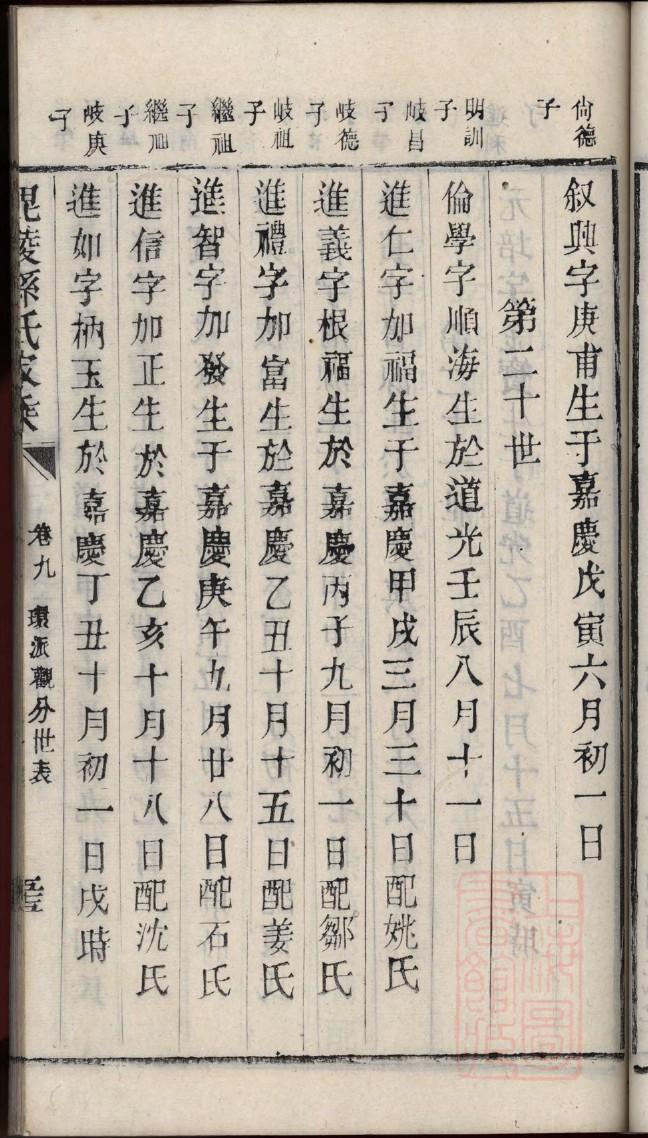 尙德子
叙興字庚甫生于嘉慶戊寅六月初一日
第二十世
明訓子
倫學字順海生於道光壬辰八月十一日
岐昌子
進仁字加福生于嘉慶甲戌三月三十日配姚氏
岐德子
進義字根福生於嘉慶丙子九月初一日配鄒氏
岐祖子
進禮字加富生於嘉慶乙丑十月十五日配姜氏
繼祖子
進智字加發生于嘉慶庚午九月廿八日配石氏
繼祖子
進信字加正生於嘉慶乙亥十月十八日配沈氏
岐庚子
進如字柄玉生於嘉慶丁丑十月初一日戌時
毘陵孫氏家乘
卷九 環派觀分世表